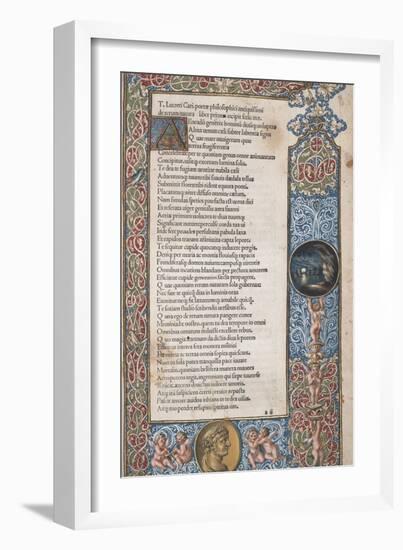 T. Lucreti Cari poetæ philosophici antiquissimi
de rerum natura liber primus incipit fœlic.
genitrix hominũ diuũqʒ uoluptas
Alma uenus cæli subter labentia signa
Quæ mare nauigerum quæ
terras frugiferentis
Concelebras: per te quoniam genus omne animantum
Concipitur, uisitqʒ exortum lumina solis.
Te dea te fugiunt nubila cæli
Aduentumqʒ tuum: tibi suaueis dædala tellus
Submittit flores: tibi rident equora ponti,
Placatumqʒ nitet diffuso lumine cælum.
Nam simul species patefacta est uerna diei
Et reserata uiget genitalis aura fauoni
Aeriæ primum uolucres te diua tuumqʒ
Significant initum perculsæ corda tua ui
Inde feræ pecudes persultant pabula læta
Et rapidos tranant amnis: ita capta lepore
Te sequitur cupide quocunqʒ inducere pergis.
Deniqʒ per maria ac montis fluuiosqʒ rapaces
Frondiferasqʒ domos auium camposqʒ uirentis
Omnibus incutiens blandum per pectora amorem
Efficis ut cupide generatim sæcla propagent.
Quæ quoniam rerum naturam sola gubernas
Nec sine te quicquam dias in luminis oras
Exoritur neqʒ fit lætum neqʒ amabile quicquam
Te sociam studeo scribundis uersibus esse.
Quos ego de rerum natura pangere conor
Memmiadæ nostro, quem tu dea tempore in omni
Omnibus ornatum uoluisti excellere rebus.
Quo magis æternum da dictis diua leporem
Effice ut interea fera monera militiai
Per maria ac terras omnis sopita quiescant.
Nam tu sola potes tranquilla pace iuuare
Mortalis, quoniam belli fera munera mauors
Armipotens regit, in gremium qui sæpe tuum se
Reiicit, æterno deuictus uulnere amoris.
Atqʒ ita suspiciens cereti ceruice reposta
Pascit amore auidos inhians in te dea uisus
Atqʒ tuo pendet resupini spiritus ore.
a ii